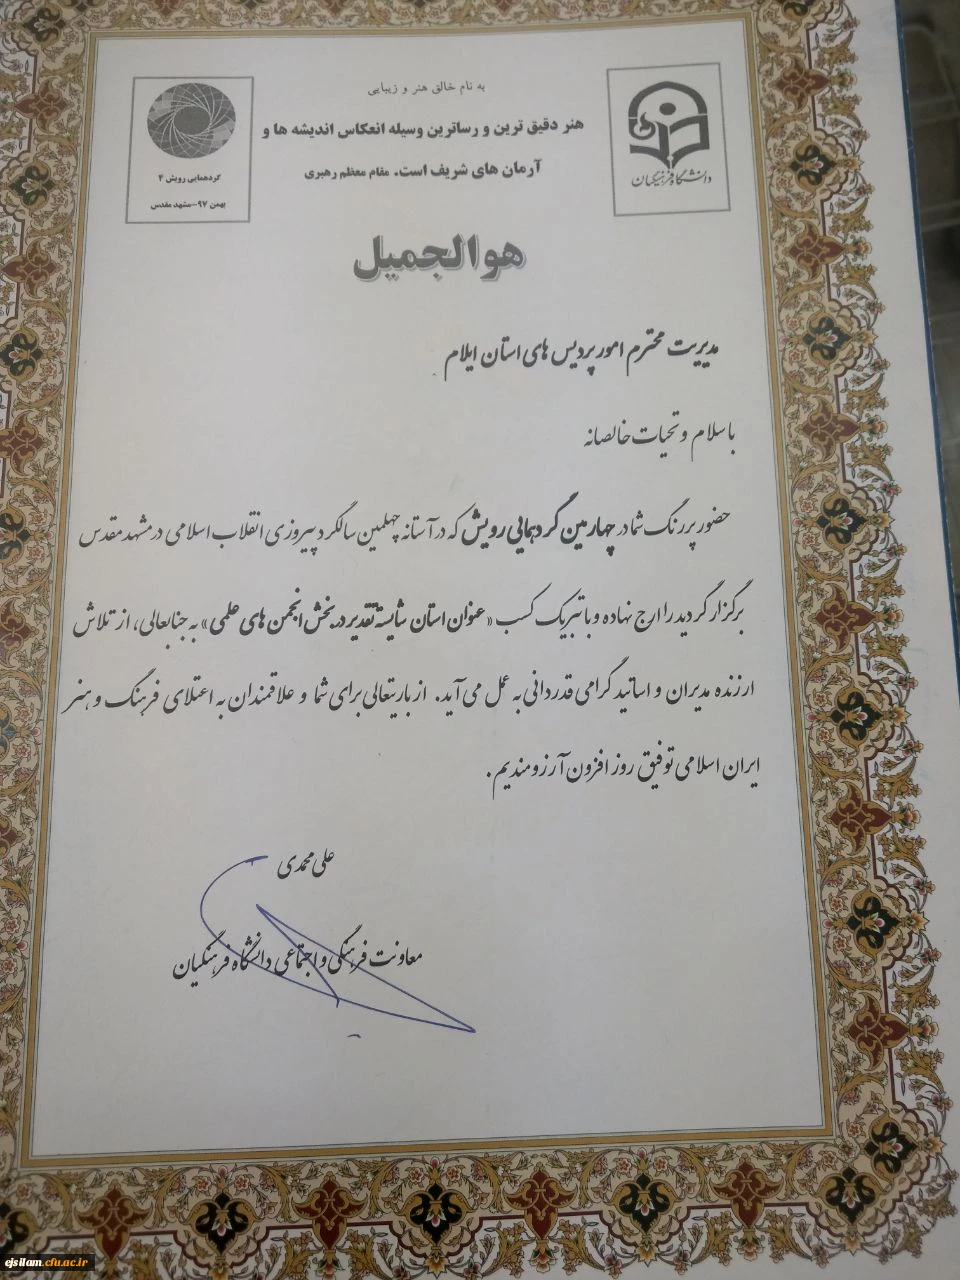 به نام خالق هنر و زیبایی
هنر دقیق ترین و رساترین وسیله انعکاس اندیشه ها و
آرمان های شریف است. مقام معظم رهبری
دانشگاه فرهنگیان
گردهمایی رویش ۴
بهمن ۹۷-مشهد مقدس
هوالجمیل
مدیریت محترم امور پردیس های استان ایلام
با سلام و تحیات خالصانه
حضور پررنگ شما در چهارمین گردهمایی رویش که در آستانه چهلمین سالگرد پیروزی انقلاب اسلامی در مشهد مقدس
برگزار گردید را ارج نهاده و با تبریک کسب «عنوان استان شایسته تقدیر در بخش انجمن های علمی» به جنابعالی، از تلاش
ارزنده مدیران و اساتید گرامی قدردانی به عمل می آید. از باریتعالی برای شما و علاقمندان به اعتلای فرهنگ و هنر
ایران اسلامی توفیق روز افزون آرزومندیم.
علی محمدی
معاونت فرهنگی و اجتماعی دانشگاه فرهنگیان
ejsilam.cfu.ac.ir